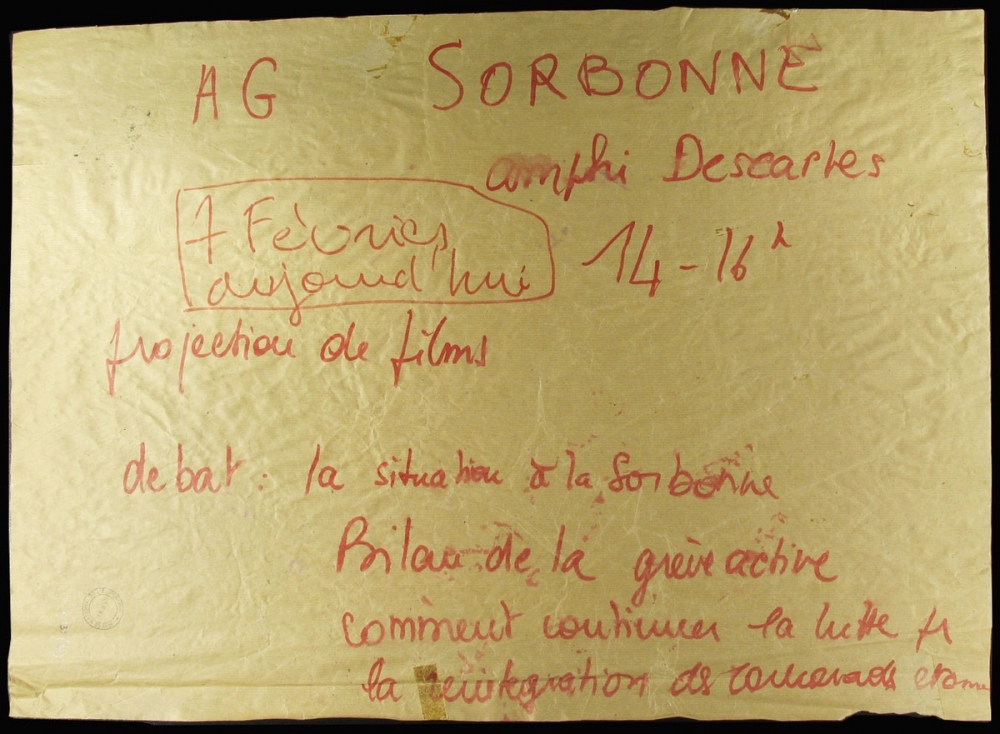 AG SORBONNE
amphi Descartes
7 Février
aujourd'hui
14-16h
projection de films
debat : la situation à la Sorbonne
Bilan de la grève active
comment continuer la lutte pr
la reintegration ds